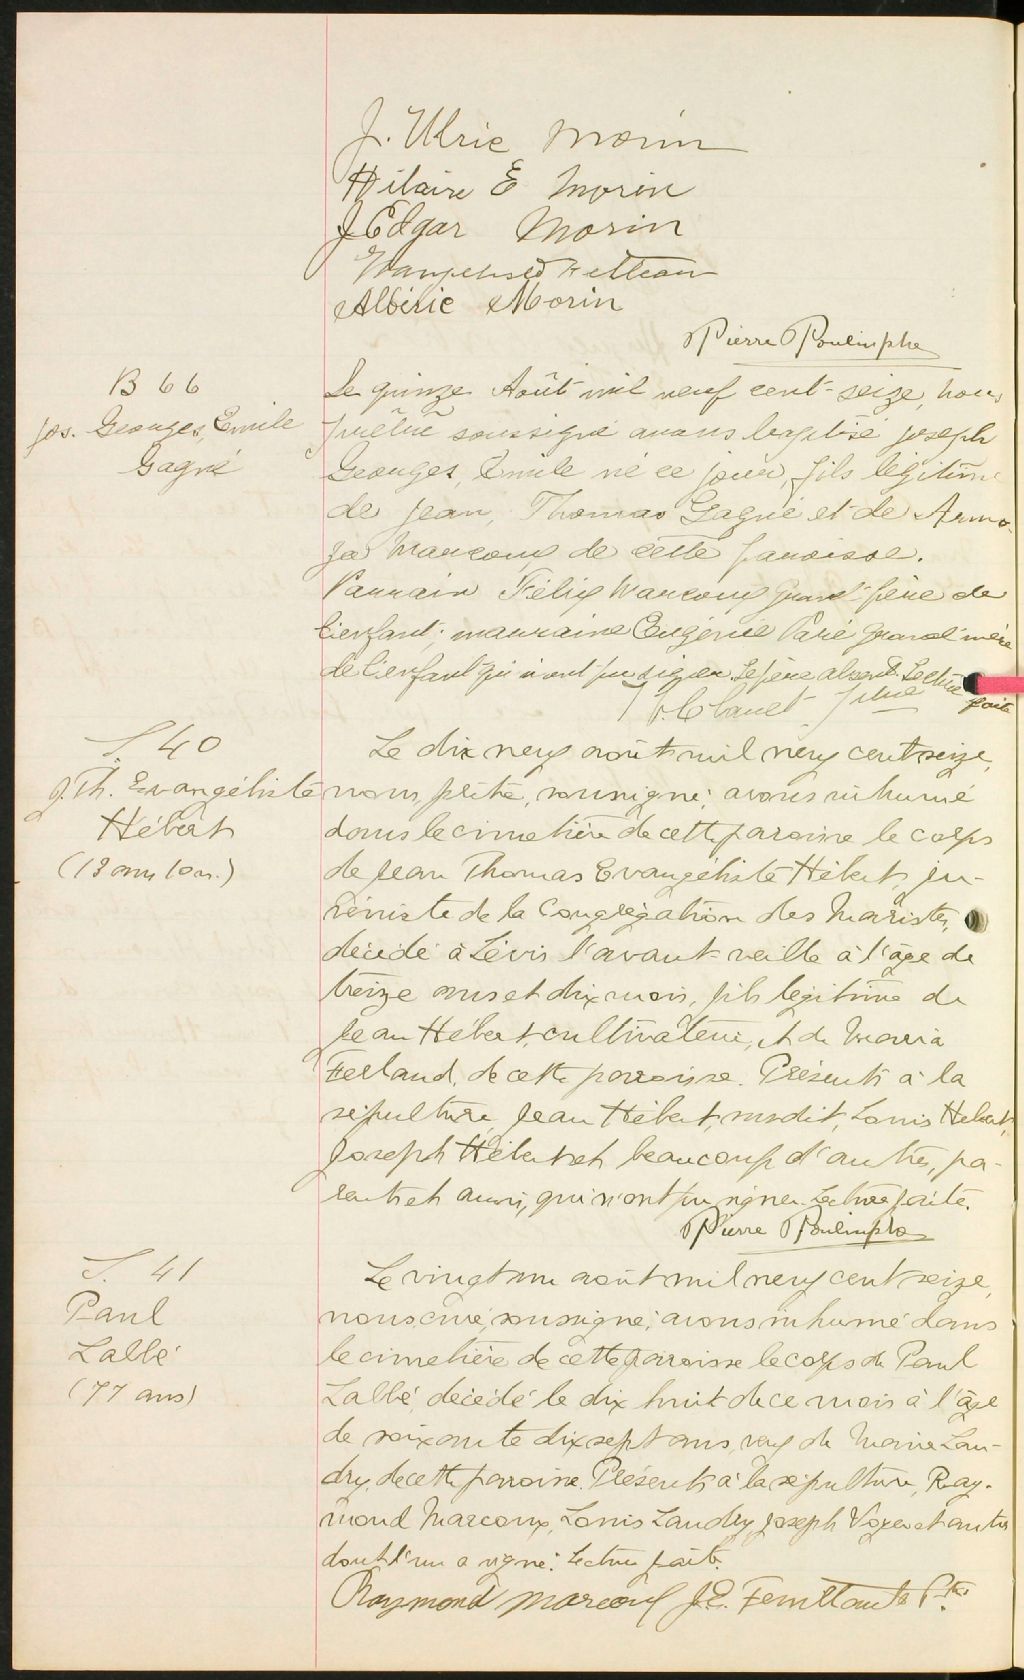 J. Ulric Morin
Hilaire E Morin
J Edgar Morin
Albéric Morin
Pierre Poulin ptre
B 66
Jos. Georges, Emile
Gagné
Le quinze Août mil neuf cent-seize, nous
prêtre soussigné avons baptisé joseph
Georges, Emile né ce jour, fils légitime
de jean, Thomas Gagné et de Arma-
za Marcoux de cette paroisse.
Parrain Félix Marcoux grand-père de
l'enfant; marraine Eugénie Paré grand'mère
de l'enfant qui n'ont pu signer. Le père absent. Lecture
faite
ptre
S. 40
J. Th. Evangéliste
Hébert
(13 ans 10 m.)
Le dix neuf août mil neuf cent seize,
nous, prêtre, soussigné, avons inhumé
dans le cimetière de cette paroisse le corps
de Jean Thomas Evangéliste Hébert, ju-
véniste de la Congrégation des Maristes,
décédé à Lévis l'avant-veille à l'âge de
treize ans et dix mois, fils légitime de
Jean Hébert, cultivateur, et de Maria
Ferland, de cette paroisse. Présents à la
sépulture, Jean Hébert, susdit, Louis Hébert,
Joseph Hébert et beaucoup d'autres, pa-
rents et amis, qui n'ont pu signer. Lecture faite.
Pierre Poulin ptre
S. 41
Paul
Labbé
(77 ans)
Le vingt un août mil neuf cent seize,
nous, curé, soussigné, avons inhumé dans
le cimetière de cette paroisse le corps de Paul
Labbé, décédé le dix huit de ce mois à l'âge
de soixante dix sept ans, veuf de Marie Lan-
dry, de cette paroisse. Présents à la sépulture, Ray-
mond Marcoux, Louis Landry, Joseph Voyer et autres
dont l'un a signé. Lecture faite.
Raymond Marcoux J. E. Feuiltault Ptre